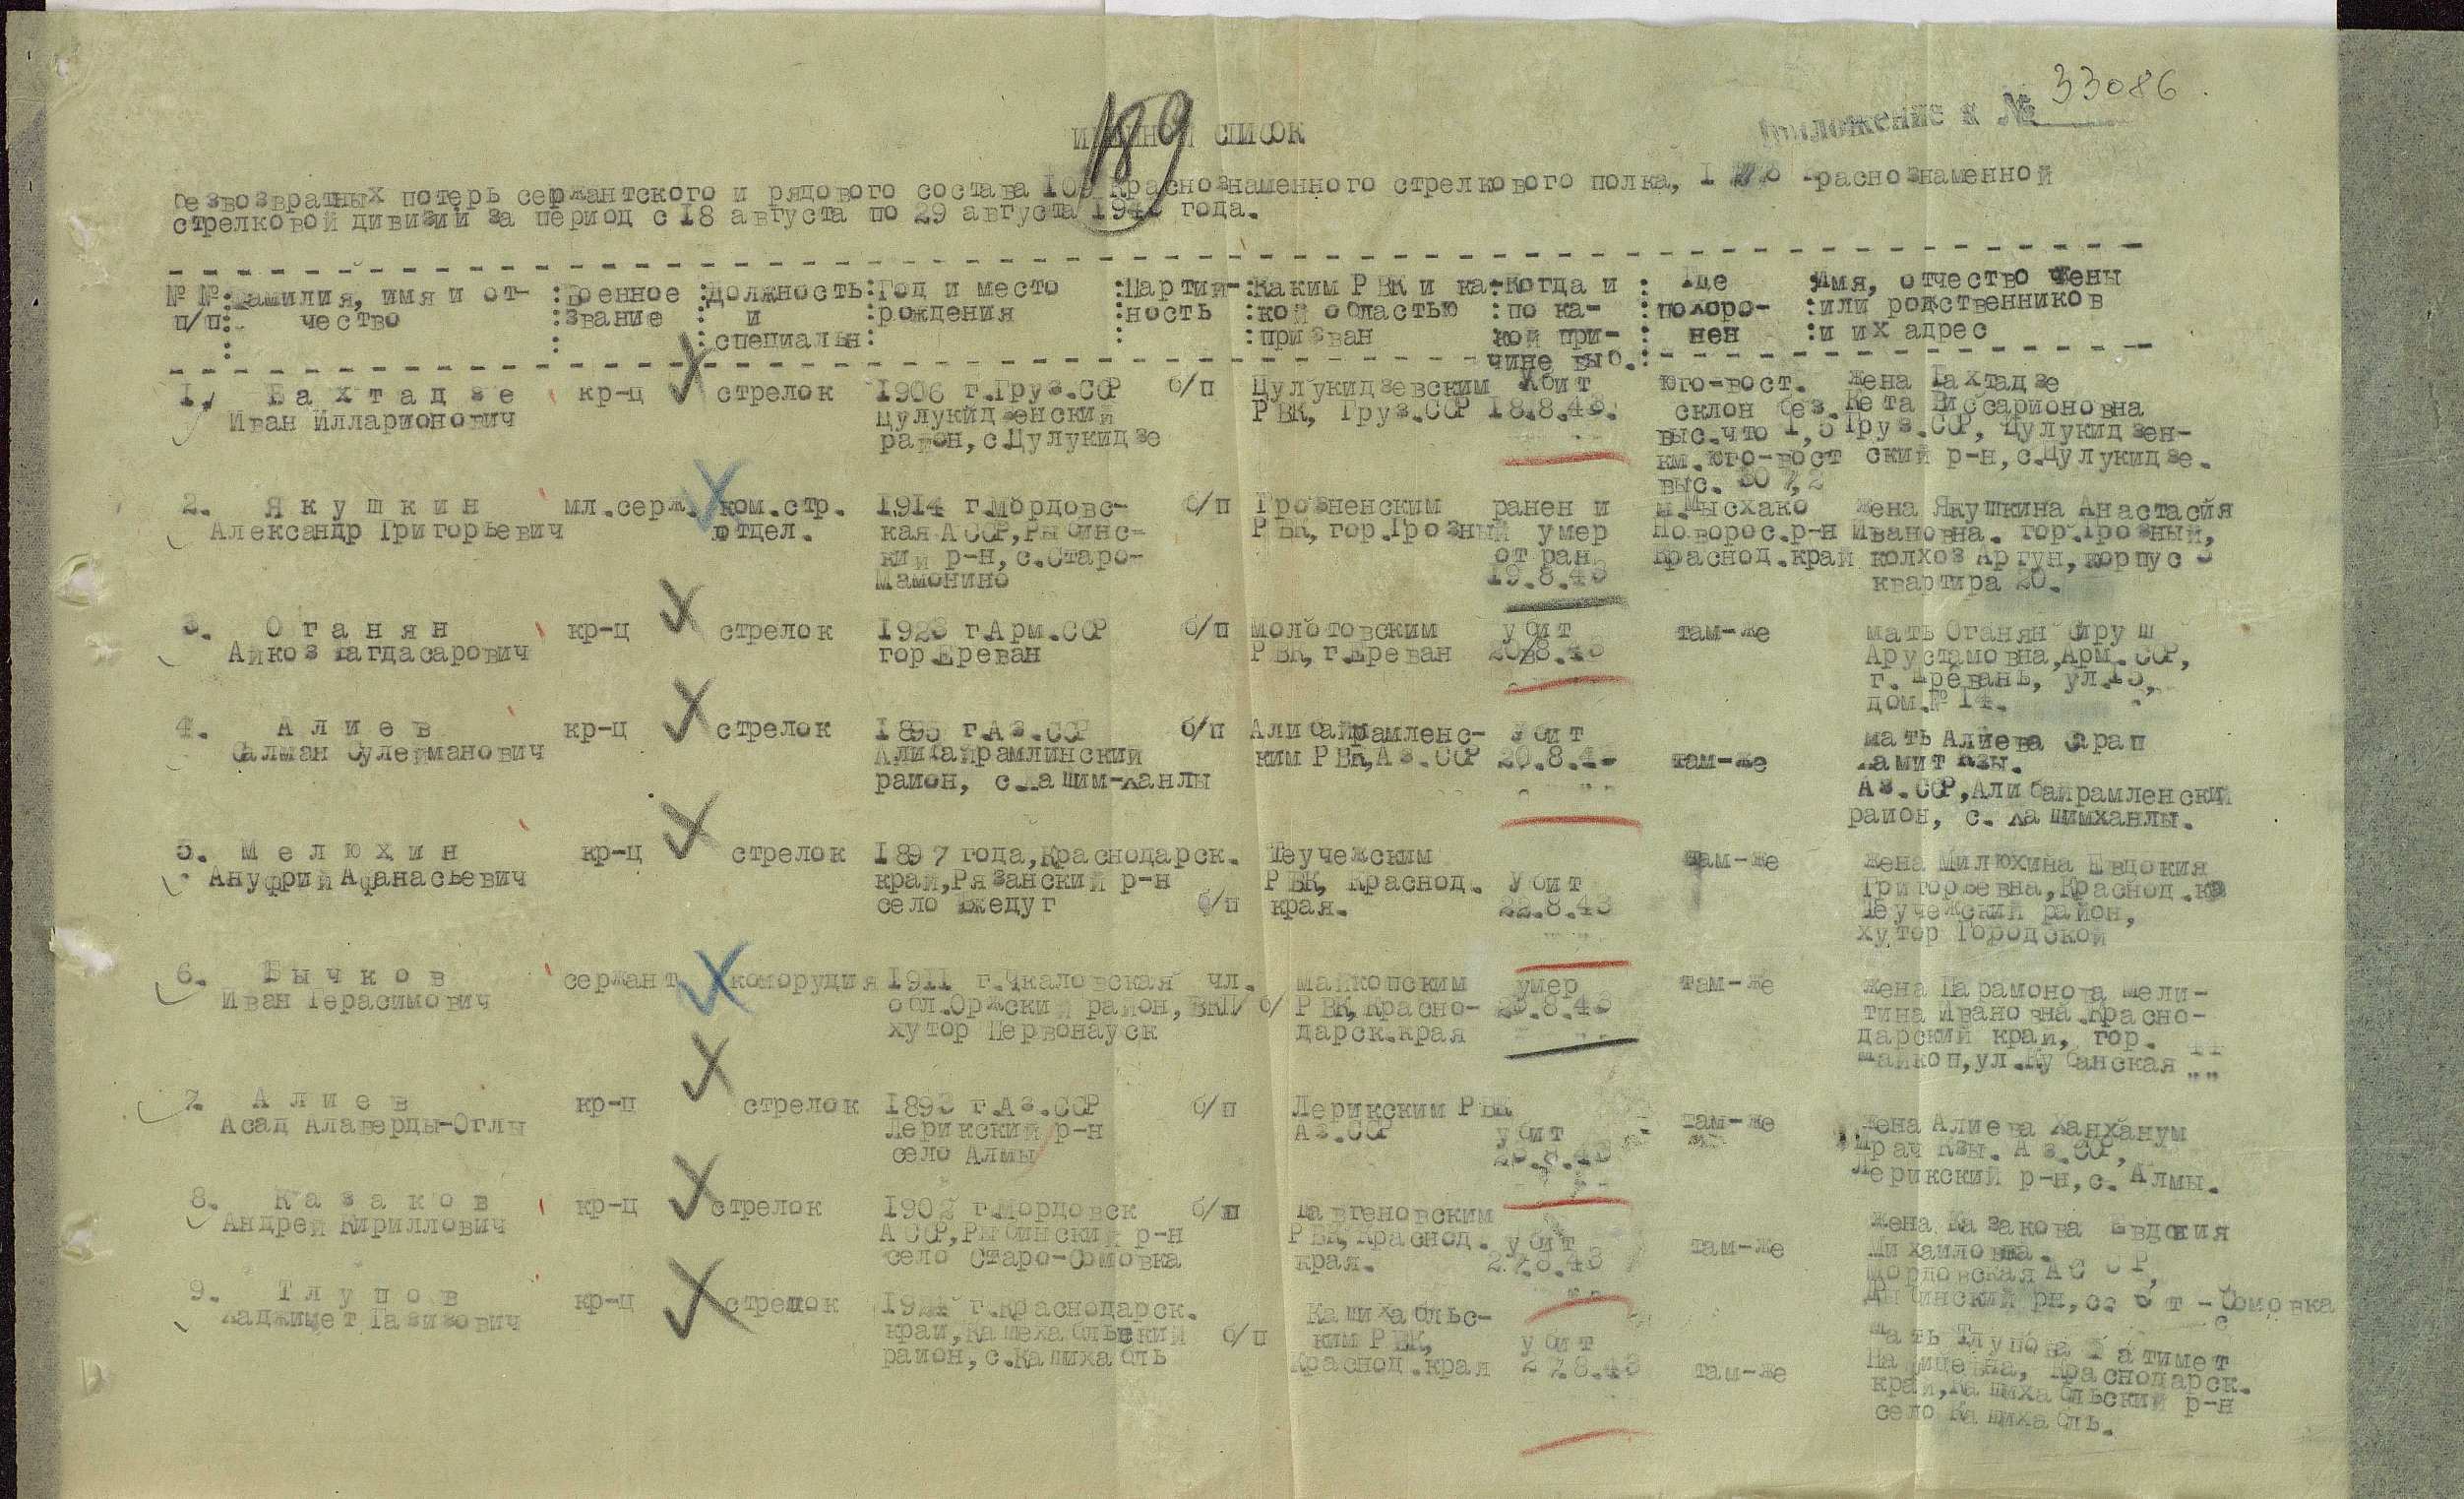 33086
Приложение к №
189
ИМЕННОЙ СПИСОК
безвозвратных потерь сержантского и рядового состава Краснознаменного стрелкового полка, Краснознаменной
стрелковой дивизии за период с 18 августа по 29 августа года.
№ №: Фамилия, имя и от- :Военное :Должность: Год и место :Партий- :Каким РВК и ка-:Когда и : Где Имя, отчество жены
п/п: чество :звание : и :рождения :ность :кой областью :по ка- :похоро- :или родственников
: : :специальн: : :призван кой при- нен :и их адрес
чине выб.:
1. Бахтадзе кр-ц стрелок 1906 г.Груз.ССР б/п Цулукидзевским Убит юго-вост. жена Бахтадзе
Иван Илларионович Цулукидзенский РВК, Груз.ССР 18.8.43. склон без. Кета Виссарионовна
район, с.Цулукидзе выс.что 1,5 Груз.ССР, Цулукидзен-
км.юго-вост ский р-н, с.Цулукидзе.
выс. 307,2
2. Якушкин мл.серж. ком.стр. 1914 г.Мордовс- б/п Грозненским ранен и м.Мысхако жена Якушкина Анастасия
Александр Григорьевич отдел. кая АССР, Рыбинс- РВК, гор.Грозный умер Новорос.р-н Ивановна. гор.Грозный,
кий р-н, с.Старо- от ран Краснод.край колхоз Аргун, корпус
Мамонино 19.8.43 квартира 20.
3. Оганян кр-ц стрелок 1923 г.Арм.ССР б/п Молотовским убит там-же мать Оганян Сируш
Айкоз Багдасарович гор.Ереван РВК, г.Ереван 20.8.43 Арустамовна, Арм.ССР,
г. Еревань, ул.15,
дом.№ 14.
4. Алиев кр-ц стрелок 1895 г.Аз.ССР б/п Алибайрамленс- Убит мать Алиева
Салман Сулейманович Алибайрамлинский ким РВК, Аз.ССР 20.8.43 там-же Хамит Кзы.
район, с.Хашим-Ханлы Аз.ССР, Алибайрамленский
район, с. Хашимханлы.
5. Мелюхин кр-ц стрелок 1897 года, Краснодарск. Теучежским там-же жена Милюхина Евдокия
Ануфрий Афанасьевич край, Рязанский р-н РВК, Краснод. Убит Григорьевна, Краснод.кр
село Бжедуг б/п края. 22.8.43 Теучежский район,
хутор Городской
6. Бычков сержант коморудия 1911 г.Чкаловская чл. Майкопским умер там-же жена Парамонова Мели-
Иван Герасимович обл.Оржский район, ВКП/б/ РВК, Красно- 23.8.43 тина Ивановна.Красно-
хутор Первонауск дарск.края дарский край, гор.
Майкоп, ул.Кубанская
7. Алиев кр-ц стрелок 1893 г.Аз.ССР б/п Лерикским РВК там-же жена Алиева Ханханум
Асад Алаверды-Оглы Лерикский р-н Аз.ССР убит Кзы. Аз.ССР,
село Алмы Лерикский р-н, с. Алмы.
8. Казаков кр-ц стрелок 1902 г.Мордовск б/п Шавгеновским жена Казакова Евдокия
Андрей Кириллович АССР, Рыбинский р-н РВК, Краснод. убит там-же Михаиловна.
село Старо-Сомовка края. 27.8.43 Мордовская АССР,
Рыбинский рн, с. Ст-Сомовка
9. Тлупов кр-ц стрелок г.Краснодарск. Кашихабльс- мать Тлупова Фатимет
Хаджимет Газизович край, Кашехабльский б/п ким РВК, убит Краснодарск.
район, с.Кашихабль Краснод.края 27.8.43 там-же край, Кашихабльский р-н
село Кашихабль.